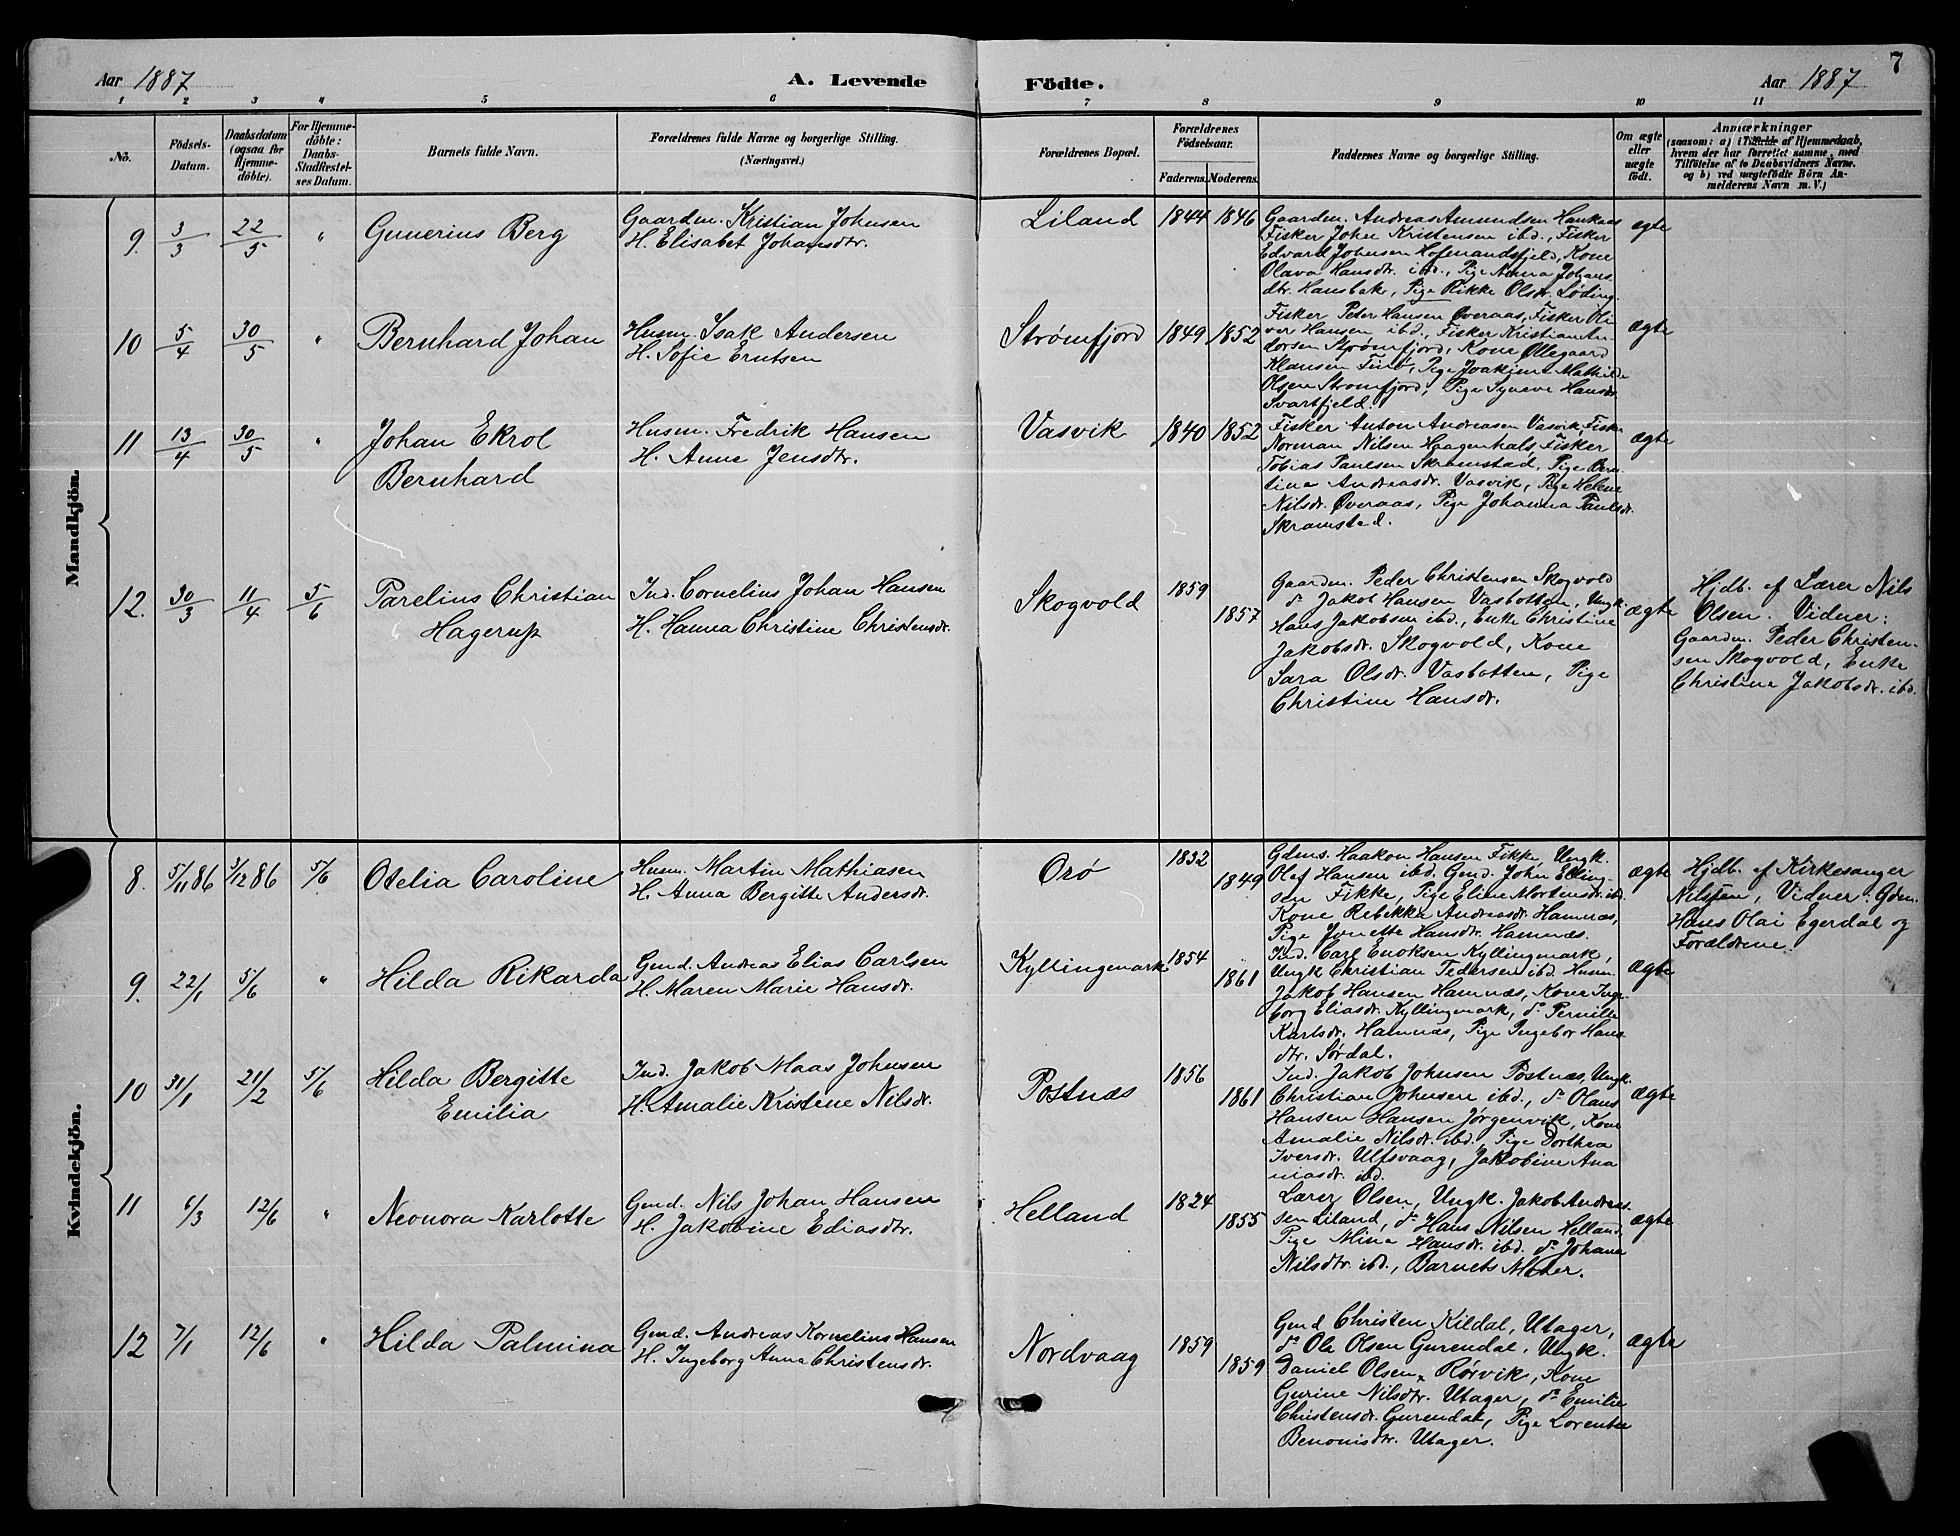 7
Aar 1887
A. Levende
Födte.
Aar 1887
1 2 3 4 5 6 7 8 9 10 11
No.
Födsels-Datum.
Daabsdatum (ogsaa for Hjemme-döbte).
For Hjemme-döbte: Daabs-Stadfæstel-ses Datum.
Barnets fulde Navn.
Forældrenes fulde Navne og borgerlige Stilling. (Næringsvei.)
Forældrenes Bopæl.
Forældrenes Födselsaar.
Faderens. Moderens.
Faddernes Navne og borgerlige Stilling.
Om ægte eller uægte födt.
Anmærkninger
(saasom: a) i Tilfælde af Hjemmedaab,
hvem der har forrettet samme, med
Tilföielse af to Daabsvidners Navne.
og b) ved uægtefödte Börn An-
melderens Navn m. V.)
Mandkjön.
9. 3/3 22/5 " Gunerius Berg
Gaardm. Kristian Johnsen
H. Elisabet Johansdtr.
Liland 1844 1846
Gaardm. Andreas Amundsen Haukaas
Fisker Johan Kristensen ibd., Fisker
Edvard Johnsen Hofmandsfjeld, Kone
Olava Hansdtr. ibd., Pige Anna Johans
dtr. Hansbak, Pige Rikke Olsdtr. Løding
egte
10 5/4 30/5 " Bernhard Johan
Husm. Isak Andersen
H. Sofie Erntsen
Strømfjord 1849 1852
Fisker Peter Hansen Øveraas, Fisker Oli
ver Hansen ibd., Fisker Kristian An-
dersen Strømfjord, Kone Ollegaard
Klausen Finø, Pige Joakime Mathilde
Olsen Strømfjord, Pige Syneve Hansdr
Svartfjeld.
Ægte
11 13/4 30/5 " Johan Ekrol
Bernhard
Husm. Fredrik Hansen
H. Anne Jensdtr.
Vasvik 1840 1852
Fisker Anton Andreasen Vasvik, Fisker
Norman Nilsen Haagenhals, Fisker
Tobias Paulsen Skramstad, Pige Bern-
tine Andreasdr. Vasvik, Pige Helene
Nilsdr. Øveraas, Pige Johanna Paulsdr.
Skramstad.
ægte
12. 30/3 11/4 5/6 Parelius Christian
Hagerup
Ind. Cornelius Johan Hansen
H. Hanna Christine Christensdr.
Skogvold 1859 1857
Gaardm. Peder Christensen Skogvold
do Jakob Hansen Vasbotten, Ungk.
Hans Jakobsen ibd., Enke Christine
Jakobsdr. Skogvold, Kone
Sara Olsdr. Vasbotten, Pige
Christine Hansdr.
ægte
Hjdb. af Lærer Nils
Olsen. Vidner:
Gaardm. Peder Christen-
sen Skogvold, Enke
Christine Jakobsdr. ibd.
Kvindekjön.
8. 5/11 86 3/12 86 5/6 Otelia Caroline
Husm. Martin Mathiasen
H. Anna Bergitte Andersdr.
Orø 1832 1849
Gdms. Haakon Hansen Fikke, Ungk.
Olaf Hansen ibd. Gmd. John Elling-
sen Fikke, Pige Eline Mortensdr. ibd.
Kone Rebekka Andreasdr. Hamnæs,
Pige Jonette Hansdr. Hamnæs.
ægte
Hjdb. af Kirkesanger
Nilssen, Vidner: Gdm.
Hans Olai Egerdal og
Forældrene.
9. 22/1 5/6 " Hilda Rikarda
Gmd. Andreas Elias Carlsen
H. Maren Marie Hansdr.
Kyllingmark 1854 1861
Ind. Carl Enoksen Kyllingmark,
Ungk Christian Pedersen ibd. Husm.
Jakob Hansen Hamnæs, Kone Inge-
borg Eliasdr. Kyllingmark, do Pernille
Karlsdr. Hamnæs, Pige Ingebor Hans
dtr. Sørdal.
Ægte
10 31/1 21/2 5/6 Hilda Bergitte
Emilia
Ind. Jakob Maas Johnsen
H. Amalie Kristine Nilsdr.
Postnæs 1856 1861
Ind. Jakob Johnsen Postnæs, Ungk.
Christian Johnsen ibd., do Olaus
Hansen Hansen Jørgenvik, Kone
Amalie Nilsdr. ibd., Pige Dorthea
Iversdr. Ulfsvaag, Jakobine Ana
niasdr. ibd.
Ægte
11 6/3 12/6 " Neonora Karlotte
Gmd. Nils Johan Hansen
H. Jakobine Ediasdtr.
Helland 1824 1855
Lærer Olsen, Ungk. Jakob Andreas-
sen Liland, do Hans Nilsen Helland
Pige Mina Hansdr. ibd. do Johana
Nilsdtr. ibd., Barnets Moder.
ægte
12 7/1 12/6 " Hilda Palmina
Gmd. Andreas Kornelius Hansen
H. Ingeborg Anna Christensdr.
Nordvaag 1859 1859
Gmd Christen Kildal, Utager,
do Ole Olsen Gurendal, Ungk.
Daniel Olsen, Rørvik, Kone
Gurine Nilsdtr. Utager, do Emilie
Christensdr. Gurendal, Pige Lorentse
Benonisdtr. Utager.
ægte